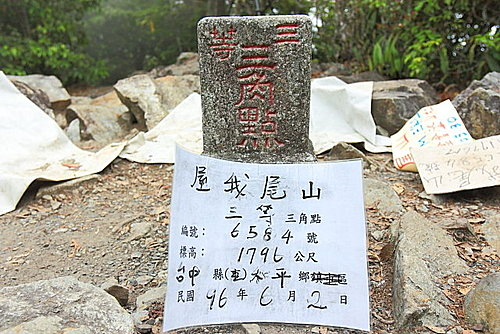 三等
三角點
屋我尾山
三等三角點
編號：6584號
標高：1796公尺
台中縣(市)太平鄉鎮市區
民國96年6月2日